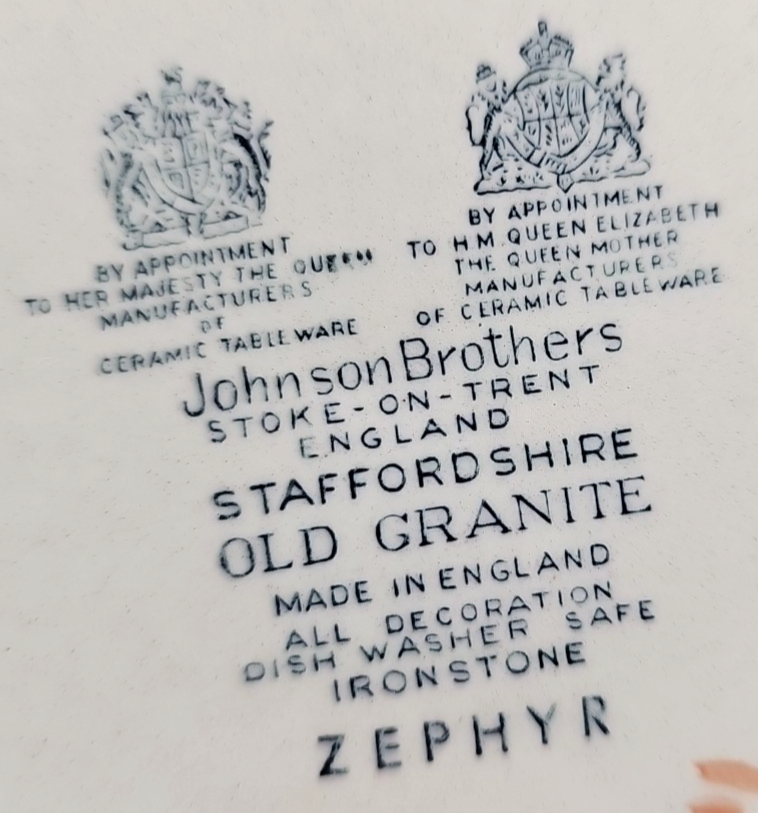 BY APPOINTMENT
TO HER MAJESTY THE QUEEN
MANUFACTURERS
OF
CERAMIC TABLEWARE
BY APPOINTMENT
TO H.M. QUEEN ELIZABETH
THE QUEEN MOTHER
MANUFACTURERS
OF CERAMIC TABLEWARE
Johnson Brothers
STOKE-ON-TRENT
ENGLAND
STAFFORDSHIRE
OLD GRANITE
MADE IN ENGLAND
ALL DECORATION
DISH WASHER SAFE
IRONSTONE
ZEPHYR